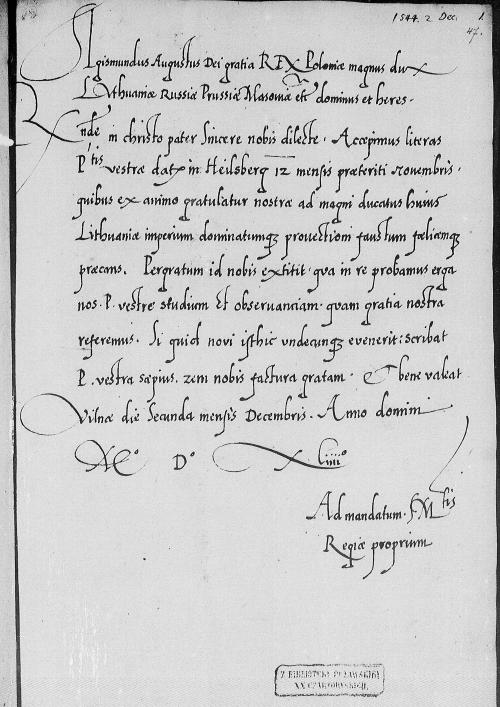 1544. 2 Dec. 1.
47.
Sigismundus Augustus Dei gratia REX Poloniæ magnus dux
Lythuaniæ Russiæ Prussiæ Masoviæ etc dominus et heres.
Rnde in christo pater sincere nobis dilecte. Accepimus literas
P.tis vestræ datas in Heilsberg 12 mensis præteriti novembris.
quibus ex animo gratulatur nostræ ad magni ducatus huius
Lithuaniæ imperium dominatumq; provectioni faustum fœlicemq;
præcans. Pergratum id nobis extitit. qua in re probamus erga
nos. P. vestræ studium et observantiam. quam gratia nostra
referemus. Si quid novi isthic undecunq; evenerit: scribat
P. vestra sæpius. rem nobis factura gratam. Et bene valeat
Vilnæ die secunda mensis Decembris. Anno domini
M.o D.o XLiiii.o
Ad mandatum. S. M.tis
Regiæ proprium
Z BIBLIOTEKI PUŁAWSKIEJ
XX CZARTORYSKICH.